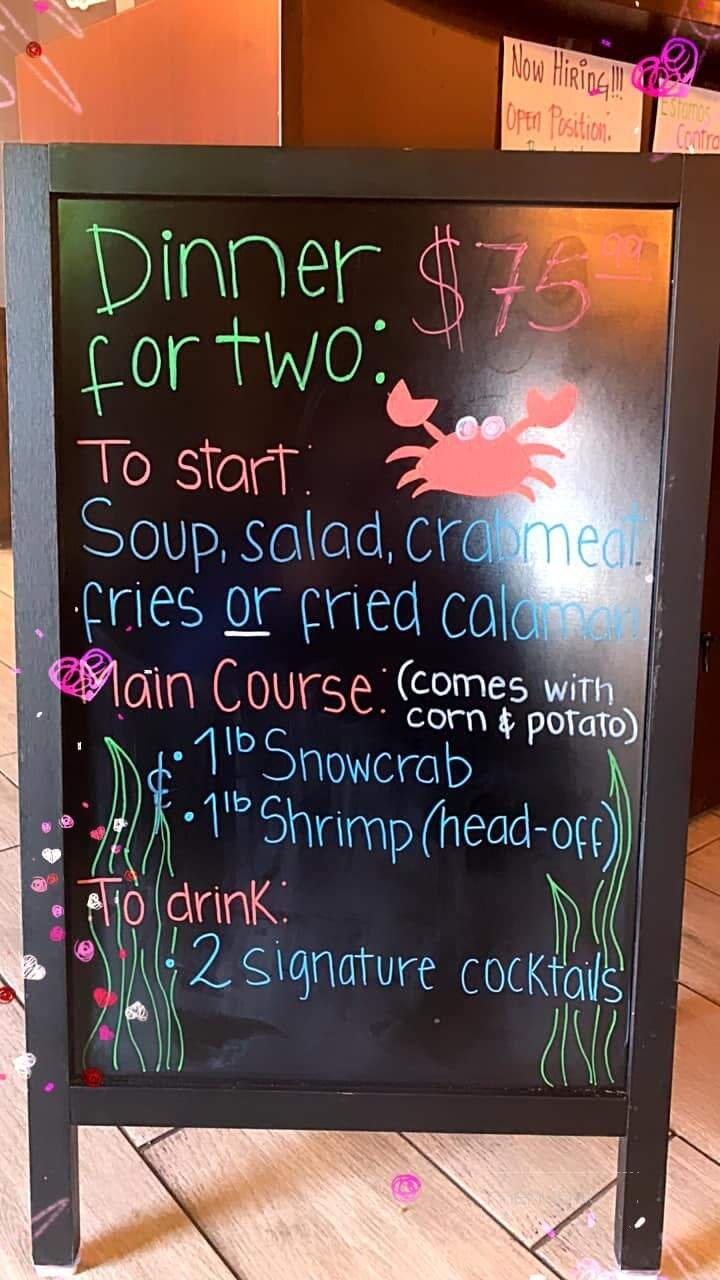 Now Hiring!!!
Open Position:
Estamos
Contra
Dinner $75 99
for two:
To start:
Soup, salad, crabmeat
fries or fried calamari
Main Course: (comes with
corn & potato)
• 1lb Snowcrab
& • 1lb Shrimp (head-off)
To drink:
• 2 signature cocktails